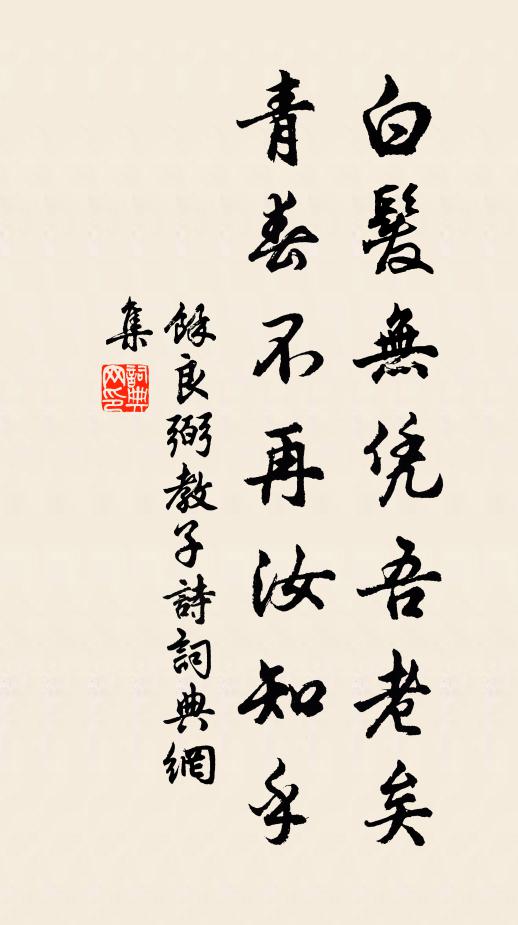 白髮無凭吾老矣
青春不再汝知乎
餘良弼教子詩詞典網
集
詞典
网印